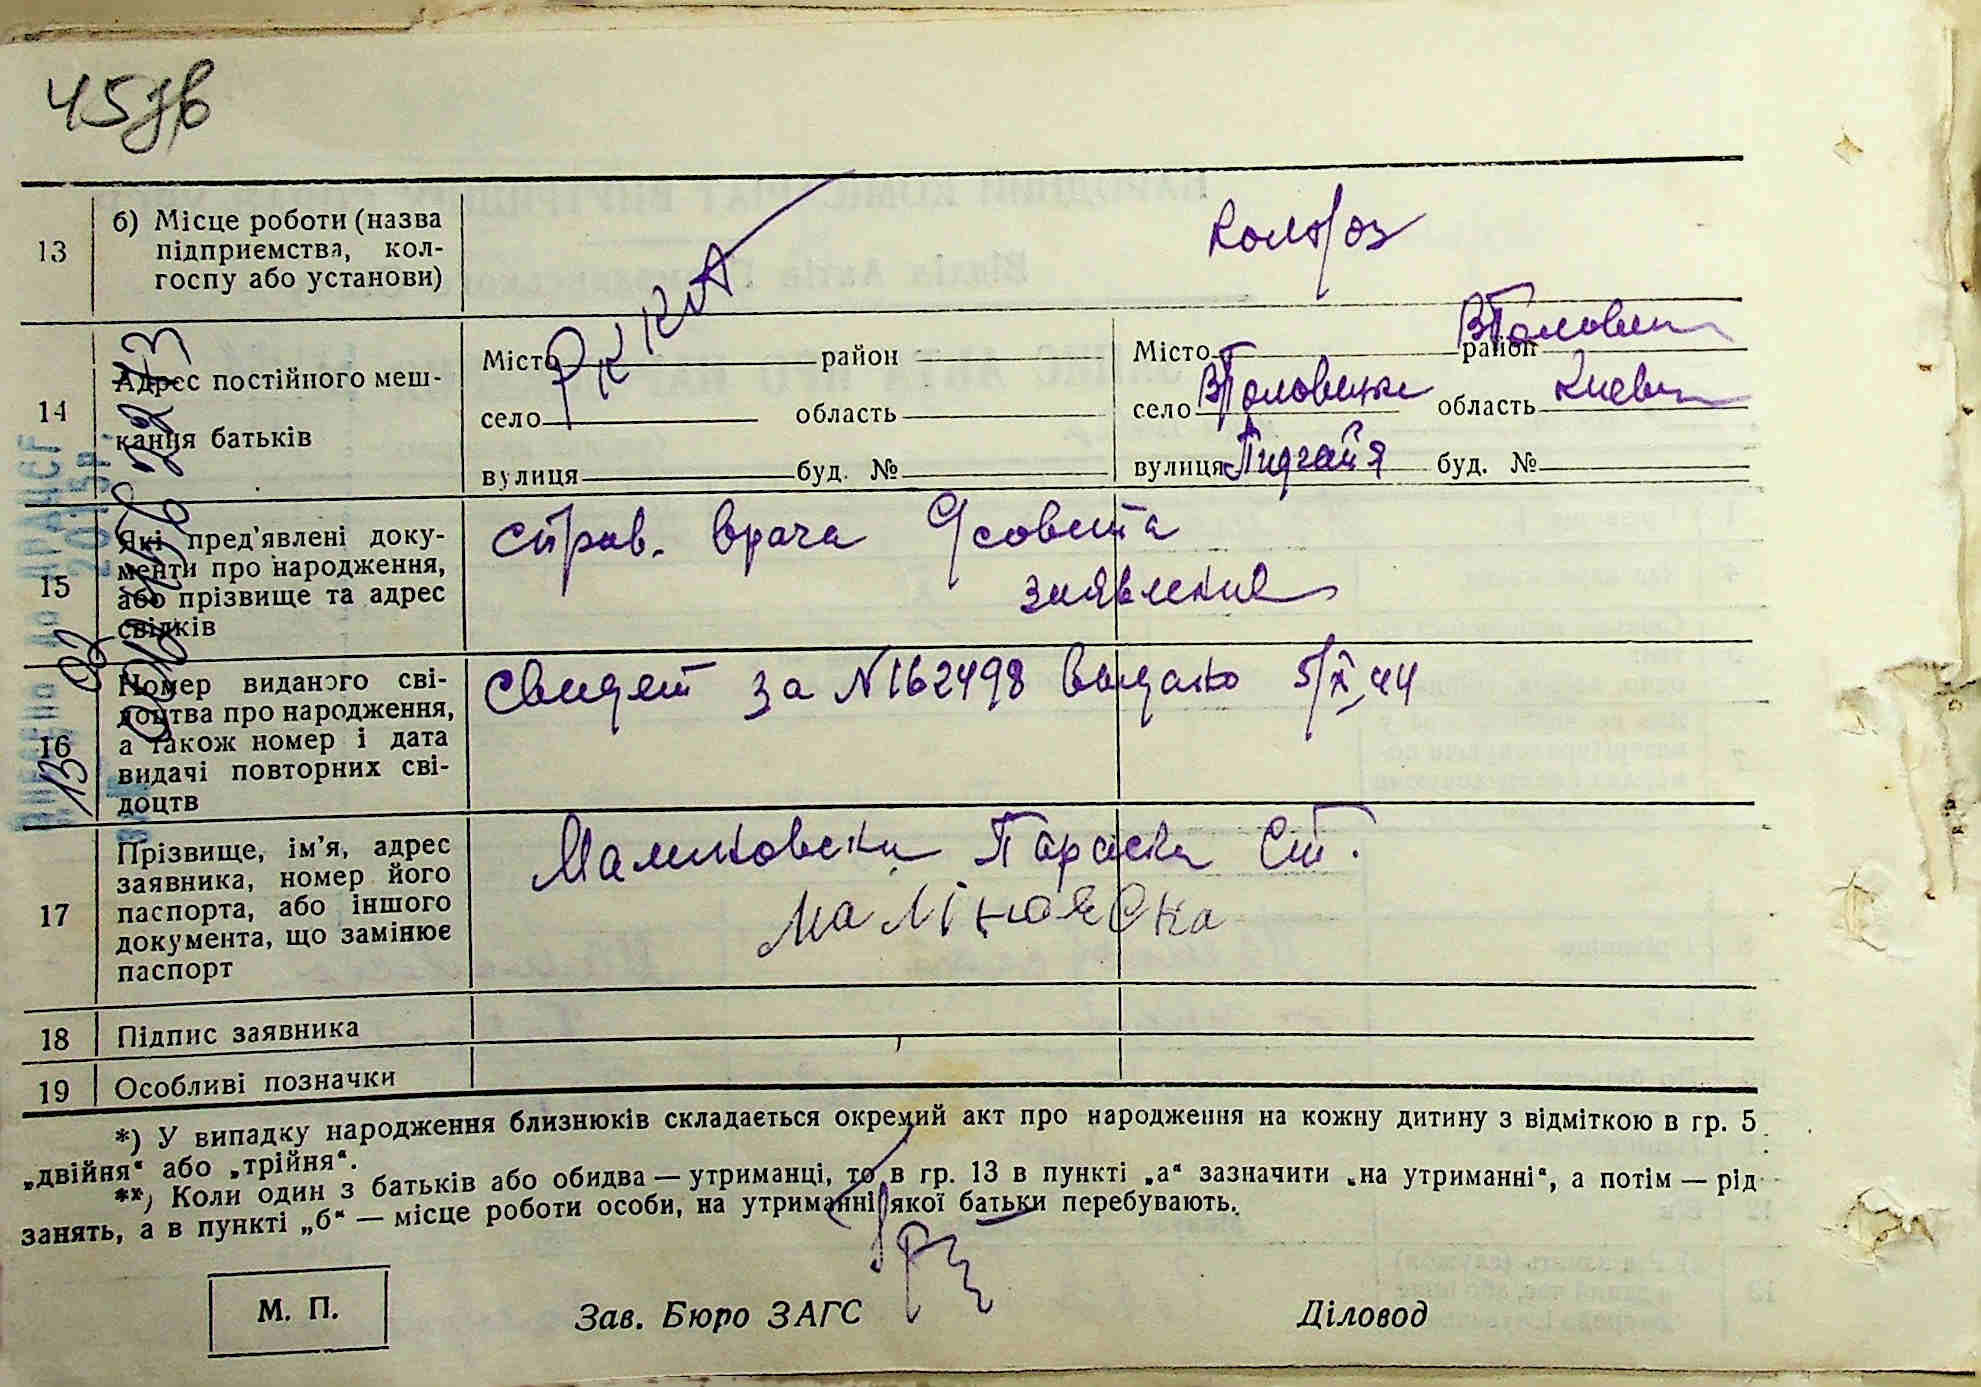 45 зв
13
б) Місце роботи (назва
підприємства, кол-
госпу або установи)
РККА
колгоз
14
Адрес постійного меш-
кання батьків
Місто район
село область
вулиця буд. №
Місто район ВПоловец
село ВПоловецке область Киевск
вулиця буд. №
15
Які пред'явлені доку-
менти про народження,
або прізвище та адрес
свідків
справ. врача
заявление
16
Номер виданого сві-
доцтва про народження,
а також номер і дата
видачі повторних сві-
доцтв
Свидет за N 162498 выдано 5/X 44
17
Прізвище, ім'я, адрес
заявника, номер його
паспорта, або іншого
документа, що замінює
паспорт
Параска Ст.
Маліновска
18 Підпис заявника
19 Особливі позначки
*) У випадку народження близнюків складається окремий акт про народження на кожну дитину з відміткою в гр. 5
„двійня“ або „трійня“.
**) Коли один з батьків або обидва — утриманці, то в гр. 13 в пункті „а“ зазначити „на утриманні“, а потім — рід
занять, а в пункті „б“ — місце роботи особи, на утриманні якої батьки перебувають.
М. П.
Зав. Бюро ЗАГС
Діловод